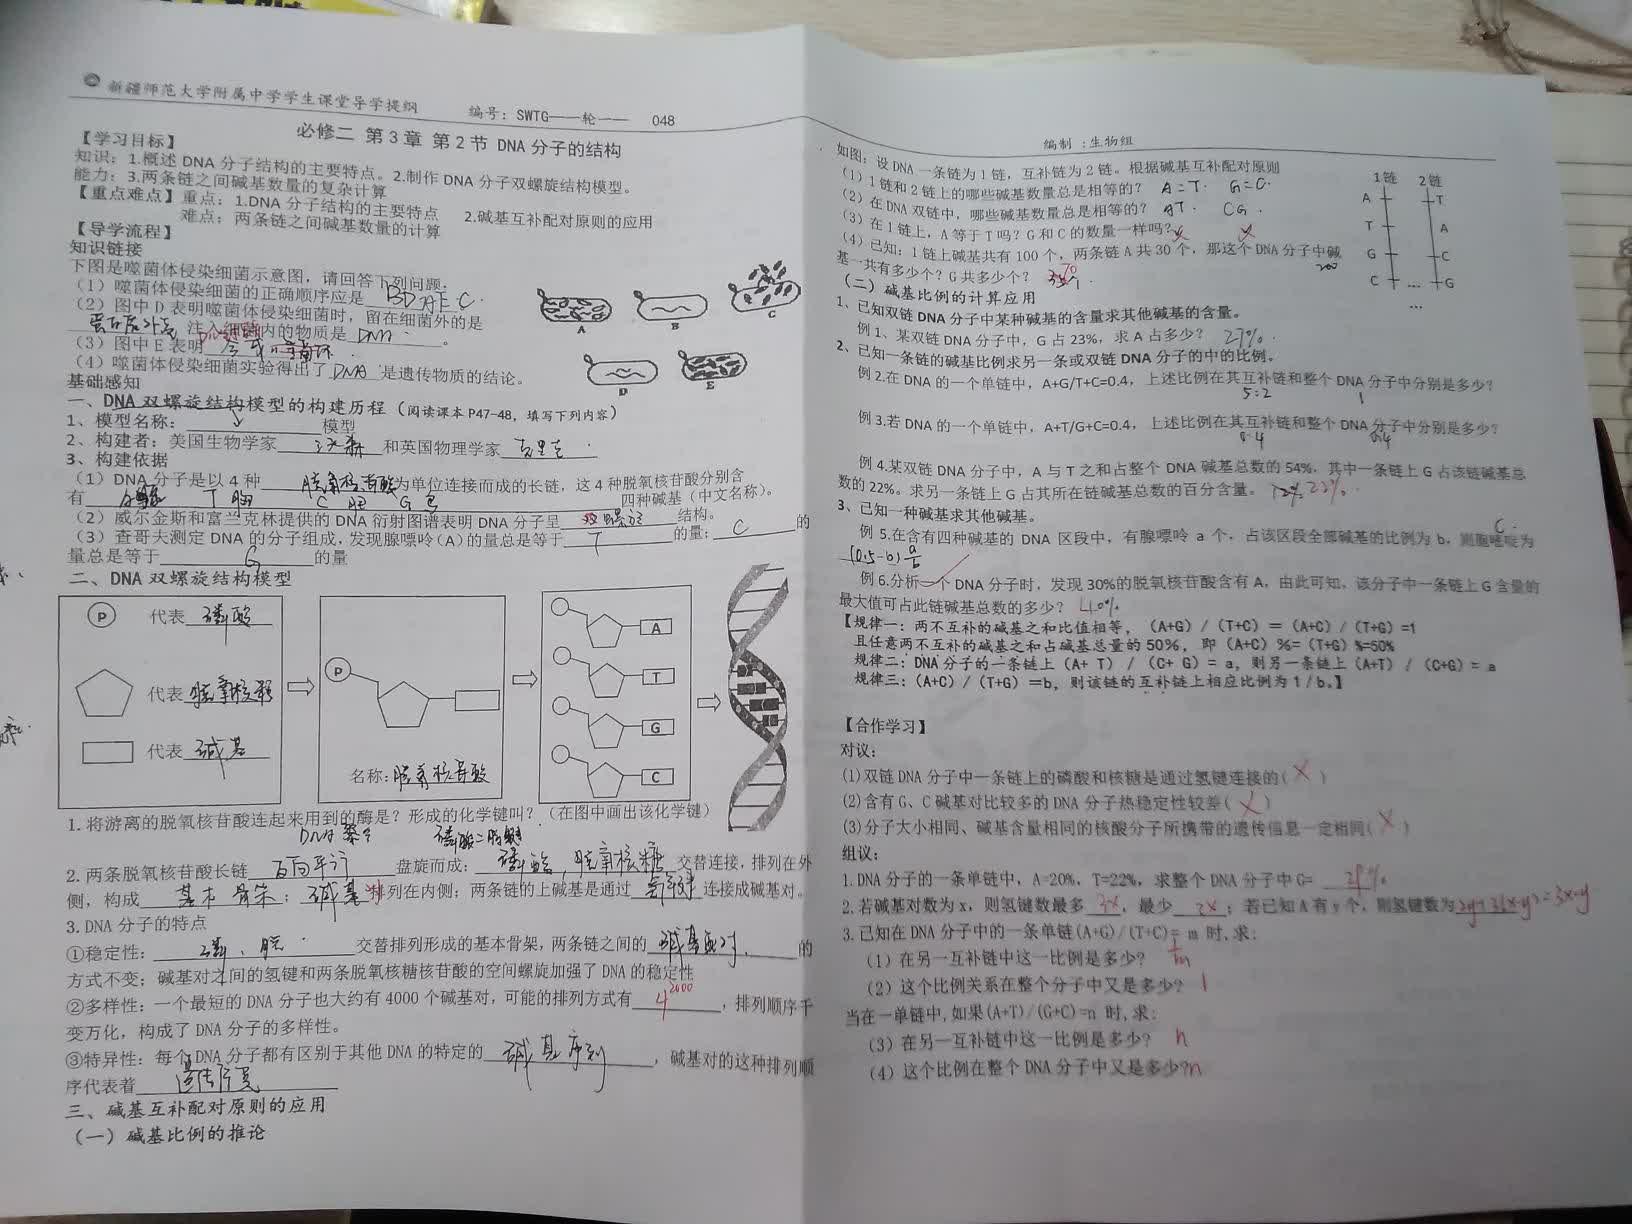 新疆师范大学附属中学学生课堂导学提纲 编号：SWTG——一轮—— 048
必修二 第3章 第2节 DNA分子的结构
【学习目标】
知识：1.概述DNA分子结构的主要特点。2.制作DNA分子双螺旋结构模型。
能力：3.两条链之间碱基数量的复杂计算
【重点难点】重点：1.DNA分子结构的主要特点 2.碱基互补配对原则的应用
难点：两条链之间碱基数量的计算
【导学流程】
知识链接
下图是噬菌体侵染细菌示意图，请回答下列问题：
（1）噬菌体侵染细菌的正确顺序应是 BDAEC.
（2）图中D表明噬菌体侵染细菌时，留在细菌外的是
蛋白质外壳 注入细菌内的物质是 DNA 。
（3）图中E表明
（4）噬菌体侵染细菌实验得出了 DNA 是遗传物质的结论。
A B C
D E
基础感知
一、DNA双螺旋结构模型的构建历程（阅读课本P47-48，填写下列内容）
1、模型名称： 模型
2、构建者：美国生物学家 沃森 和英国物理学家 克里克
3、构建依据
（1）DNA分子是以4种 脱氧核苷酸 为单位连接而成的长链，这4种脱氧核苷酸分别含
有 T胸 C胞 G鸟 四种碱基（中文名称）。
（2）威尔金斯和富兰克林提供的DNA衍射图谱表明DNA分子呈 双螺旋 结构。
（3）查哥夫测定DNA的分子组成，发现腺嘌呤(A)的量总是等于 T 的量； C 的
量总是等于 G 的量
二、DNA双螺旋结构模型
P 代表 磷酸
代表 脱氧核糖
代表 碱基
P
名称：脱氧核苷酸
A
T
G
C
1.将游离的脱氧核苷酸连起来用到的酶是？形成的化学键叫？（在图中画出该化学键）
DNA聚合 磷酸二酯键
2.两条脱氧核苷酸长链 反向平行 盘旋而成： 磷酸，脱氧核糖 交替连接，排列在外
侧，构成 基本骨架； 碱基 排列在内侧；两条链的上碱基是通过 氢键 连接成碱基对。
3.DNA分子的特点
①稳定性： 磷、脱 交替排列形成的基本骨架，两条链之间的 碱基配对 的
方式不变；碱基对之间的氢键和两条脱氧核糖核苷酸的空间螺旋加强了DNA的稳定性
②多样性：一个最短的DNA分子也大约有4000个碱基对，可能的排列方式有 4²⁰⁰⁰ ，排列顺序千
变万化，构成了DNA分子的多样性。
③特异性：每个DNA分子都有区别于其他DNA的特定的 碱基序列 ，碱基对的这种排列顺
序代表着 遗传信息
三、碱基互补配对原则的应用
（一）碱基比例的推论
编制：生物组
如图：设DNA一条链为1链，互补链为2链。根据碱基互补配对原则
（1）1链和2链上的哪些碱基数量总是相等的？ A=T. G=C.
（2）在DNA双链中，哪些碱基数量总是相等的？ AT. CG.
（3）在1链上，A等于T吗？G和C的数量一样吗？ × ×
（4）已知：1链上碱基共有100个，两条链A共30个，那这个DNA分子中碱
基一共有多少个？G共多少个？ 200 70个
1链 2链
A T
T A
G C
C … G
…
（二）碱基比例的计算应用
1、已知双链DNA分子中某种碱基的含量求其他碱基的含量。
例1、某双链DNA分子中，G占23%，求A占多少？ 27%.
2、已知一条链的碱基比例求另一条或双链DNA分子的中的比例。
例2.在DNA的一个单链中，A+G/T+C=0.4，上述比例在其互补链和整个DNA分子中分别是多少？
5:2 1
例3.若DNA的一个单链中，A+T/G+C=0.4，上述比例在其互补链和整个DNA分子中分别是多少？
0.4 0.4
例4.某双链DNA分子中，A与T之和占整个DNA碱基总数的54%，其中一条链上G占该链碱基总
数的22%。求另一条链上G占其所在链碱基总数的百分含量。
3、已知一种碱基求其他碱基。
例5.在含有四种碱基的DNA区段中，有腺嘌呤a个，占该区段全部碱基的比例为b，则胞嘧啶为
(0.5-b)a/b
例6.分析一个DNA分子时，发现30%的脱氧核苷酸含有A，由此可知，该分子中一条链上G含量的
最大值可占此链碱基总数的多少？ 40%
【规律一：两不互补的碱基之和比值相等，（A+G）/（T+C）＝（A+C）/（T+G）=1
且任意两不互补的碱基之和占碱基总量的50%，即（A+C）%=（T+G）%=50%
规律二：DNA分子的一条链上（A+T）/（C+G）= a，则另一条链上（A+T）/（C+G）= a
规律三：（A+C）/（T+G）＝b，则该链的互补链上相应比例为1/b。】
【合作学习】
对议：
(1)双链DNA分子中一条链上的磷酸和核糖是通过氢键连接的( × )
(2)含有G、C碱基对比较多的DNA分子热稳定性较差( × )
(3)分子大小相同、碱基含量相同的核酸分子所携带的遗传信息一定相同( × )
组议：
1.DNA分子的一条单链中，A=20%，T=22%，求整个DNA分子中G=
2.若碱基对数为x，则氢键数最多 3x ，最少 2x ；若已知A有y个，则氢键数为 2y+3(x-y)=3x-y
3.已知在DNA分子中的一条单链(A+G)/(T+C)= m 时,求:
（1）在另一互补链中这一比例是多少？ 1/m
（2）这个比例关系在整个分子中又是多少？ 1
当在一单链中,如果(A+T)/(G+C)=n 时,求:
（3）在另一互补链中这一比例是多少？ n
（4）这个比例在整个DNA分子中又是多少？n